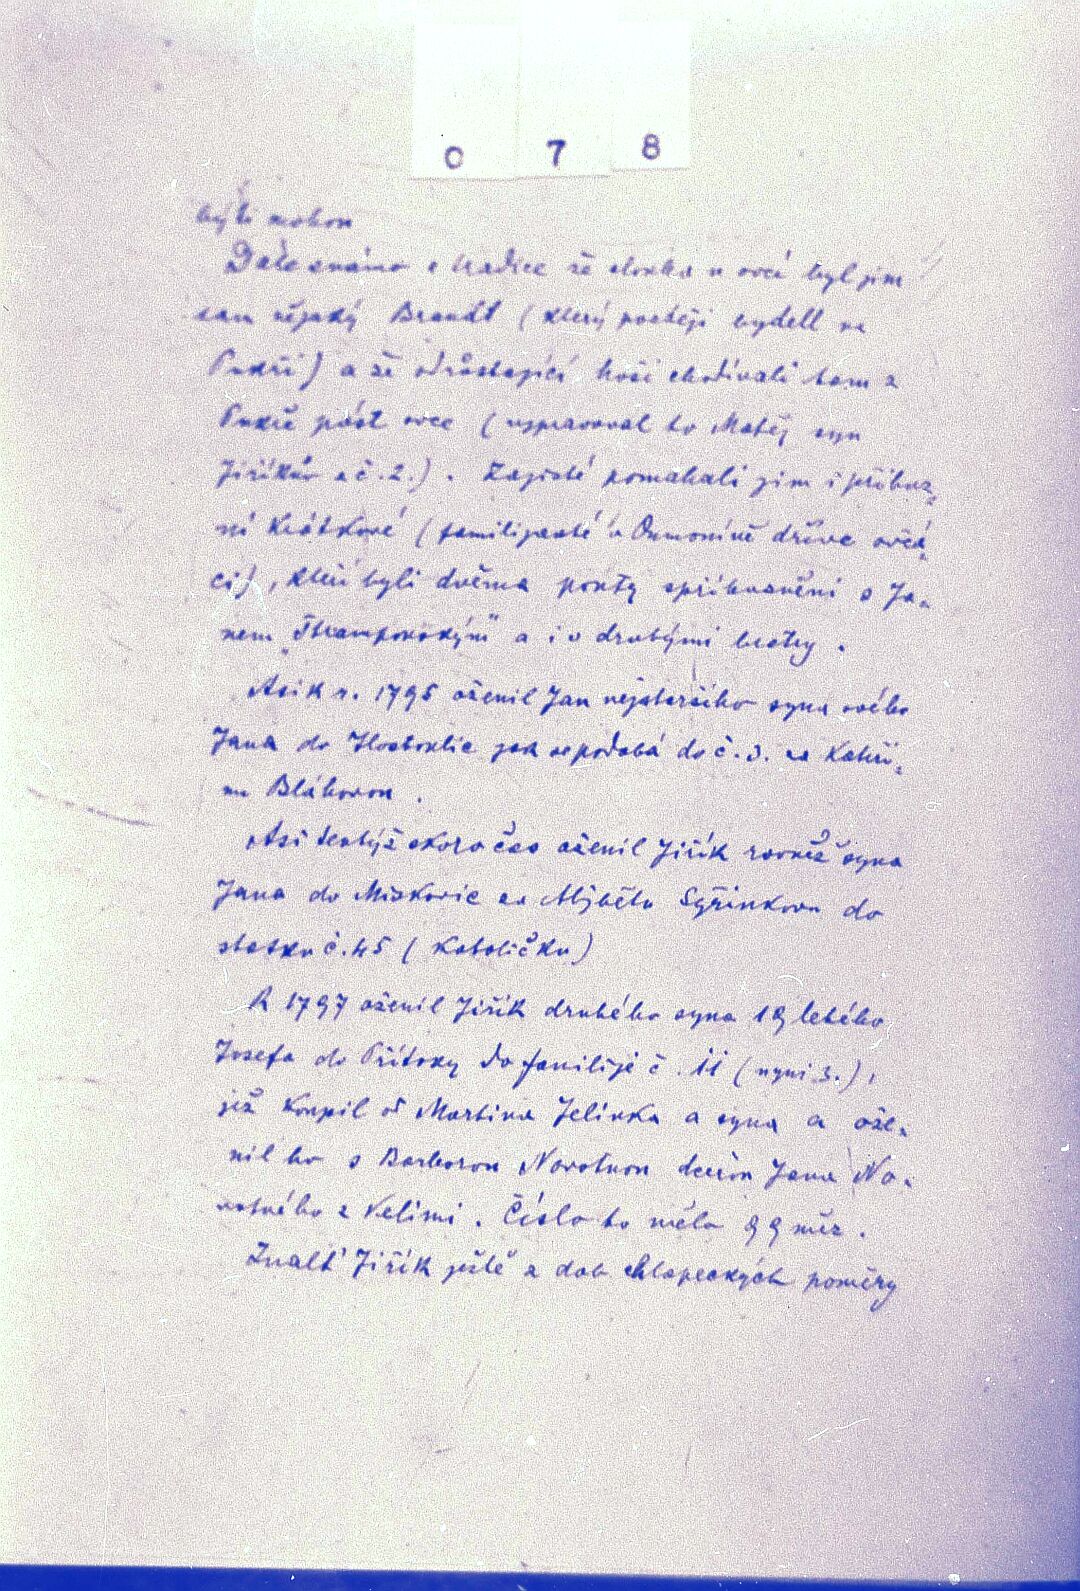 0 7 8
býti mohou
Dále známo z tradice že u ovcí byl jim
sám nějaký Brandt (který později bydlel na
) a že odrůstající hoši chodívali tam z
pást ovce (vypravoval to Matěj syn
Jiříkův z č. 2.). Zajisté pomahali jim i příbuz„
ní Krátkové ( dříve ovčá„
ci), kteří byli dvěma pouty spříbuzněni s Ja„
nem a i s druhými bratry.
Asi k r. 1795 oženil Jan nejstaršího syna svého
Jana do Hostovlic jak se podobá do č. 3. za Kateři„
nu Bláhovou.
Asi tentýž skoro čas oženil Jiřík rovněž syna
Jana do Miskovic za Alžbětu Syřinkovu do
statku č. 45 (Katoličku)
R 1797 oženil Jiřík druhého syna 19 letého
Josefa do Přítoky do familije č. 11 (nyni 3.),
jež koupil od Martina Jelinka a syna a ože„
nil ho s Barborou Novotnou dcerou Jana No„
votného z Kelimi. Číslo to mělo 99 měr.
Znalť Jiřík ještě z dob chlapeckých poměry